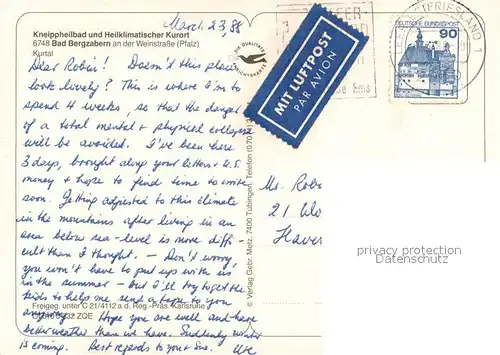 March 23, 88
Kneippheilbad und Heilklimatischer Kurort
6748 Bad Bergzabern an der Weinstraße (Pfalz)
Kurtal
Dear Robin! Doesn't this place
look lovely? This is where I'm to
spend 4 weeks, so that the danger
of a total mental + physical collapse
will be avoided. I've been here
3 days, brought along your letters + U.S.
money + hope to find time to write
soon. Getting adjusted to this climate
in the mountains after living in an
area below sea-level is more diffi-
cult than I thought. — Don't worry,
you won't have to put up with us
in the summer — but I'll try to get the
kids to help me send a tape to you
anyway. Hope you are well and have
better weather than we have. Suddenly winter
is coming. Best regards to your Sis. Ute
Freigeg. unter G 21/4112 a d. Reg.-Präs. Karlsruhe
ZQE
© Verlag Gebr. Metz, 7400 Tübingen, Telefon
MIT LUFTPOST
PAR AVION
DEUTSCHE BUNDESPOST
90
(OSTFRIESLAND) 1
Ms. Robi
21
Haver
copyright protection